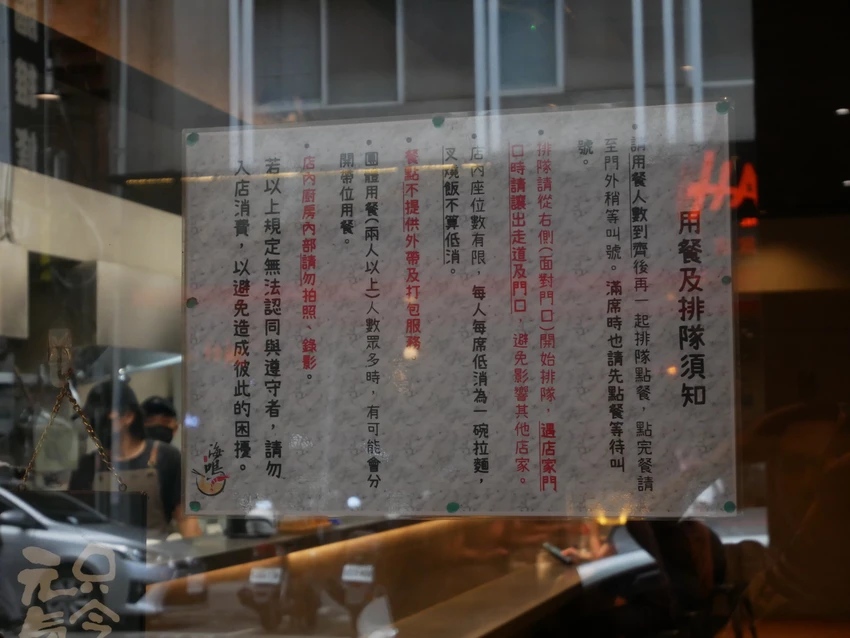 用餐及排隊須知
請用餐人數到齊後再一起排隊點餐，點完餐請
至門外稍等叫號。滿席時也請先點餐等待叫
號。
排隊請從右側(面對門口)開始排隊，遇店家門
口時請讓出走道及門口，避免影響其他店家。
店內座位數有限，每人每席低消為一碗拉麵，
叉燒飯不算低消。
餐點不提供外帶及打包服務
團體用餐(兩人以上)人數眾多時，有可能會分
開帶位用餐。
店內廚房內部請勿拍照、錄影。
若以上規定無法認同與遵守者，請勿
入店消費，以避免造成彼此的困擾。
HA
只今
元気